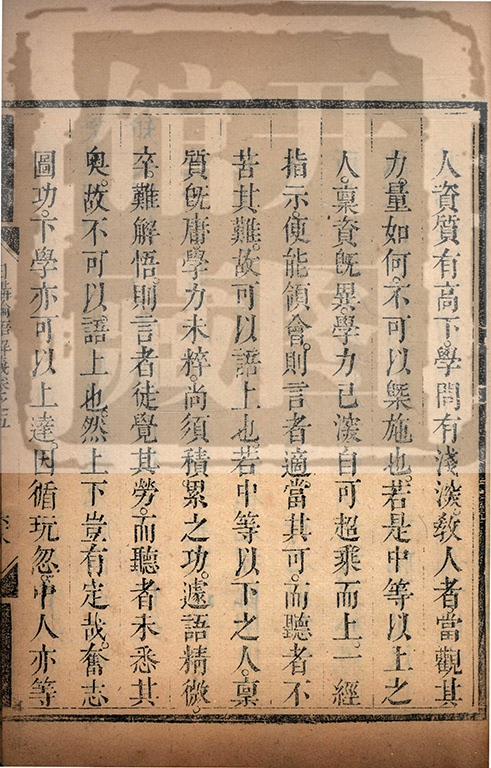 人資質有高下。學問有淺深。敎人者當觀其
力量如何。不可以槩施也。若是中等以上之
人。稟資旣異。學力已深。自可超乘而上。一經
指示。便能領會。則言者適當其可。而聽者不
苦其難。故可以語上也。若中等以下之人。稟
質旣庸。學力未粹。尚須積累之功。遽語精微。
卒難解悟。則言者徒覺其勞。而聽者未悉其
奥。故不可以語上也。然上下豈有定哉。奮志
圖功。下學亦可以上達。因循玩忽。中人亦等